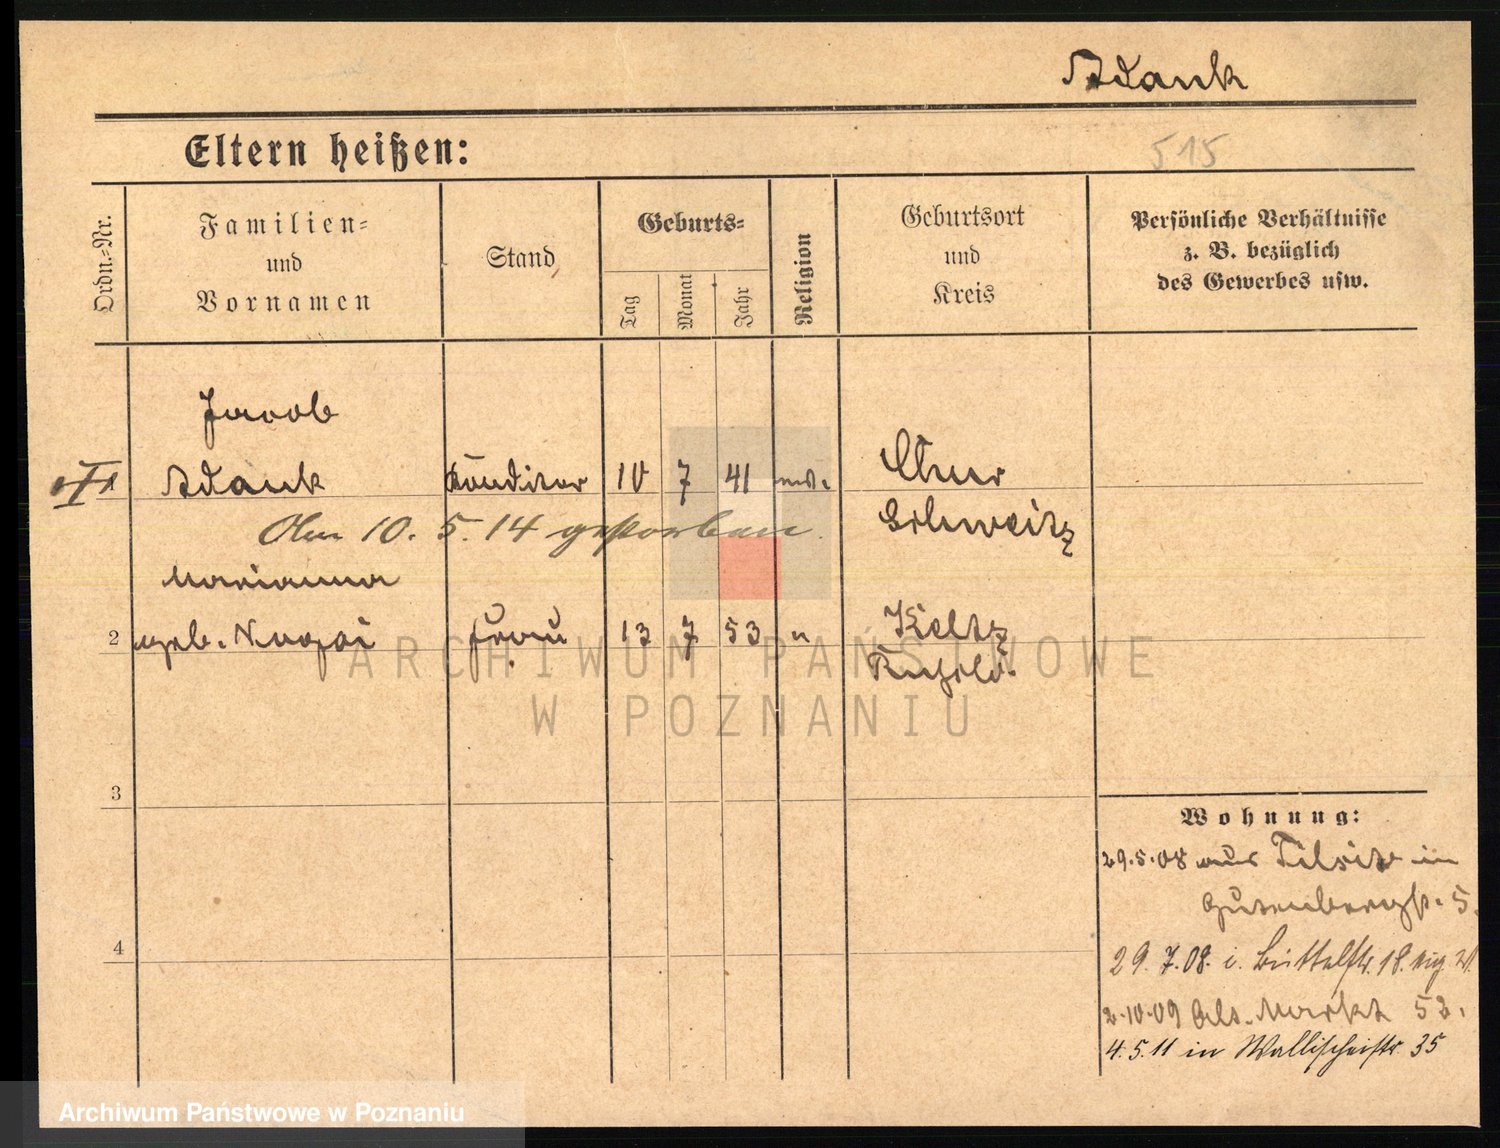 Adank
Eltern heißen:
515
Ordn.-Nr.
Familien-
und
Vornamen
Stand
Geburts-
Tag
Monat
Jahr
Religion
Geburtsort
und
Kreis
Persönliche Verhältnisse
z. B. bezüglich
des Gewerbes usw.
Jacob
Adank Konditor 10 7 41 Chur
Am 10. 5. 14 gestorben. Schweitz
Marianna
2 geb. Frau 13 7 53 " Keltz
Rußld.
3
4
Wohnung:
29.5.08 aus Tilsit in
Gutenbergstr. 5.
29. 7.08. i. Büttelstr. 18.
2.10.09 Alt. Markt 52.
4.5.11 in Wallischeistr. 35
ARCHIWUM PAŃSTWOWE
W POZNANIU
Archiwum Państwowe w Poznaniu